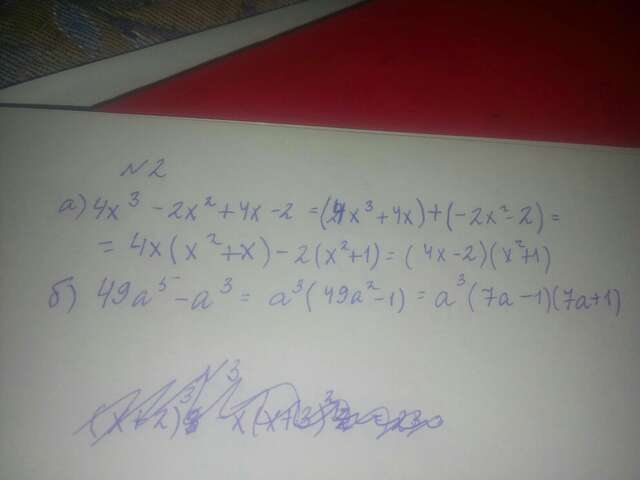 N2
а) 4x³ - 2x² + 4x - 2 = (4x³ + 4x) + (-2x² - 2) =
= 4x(x² + x) - 2(x² + 1) = (4x - 2)(x² + 1)
б) 49a⁵ - a³ = a³(49a² - 1) = a³(7a - 1)(7a + 1)
N3